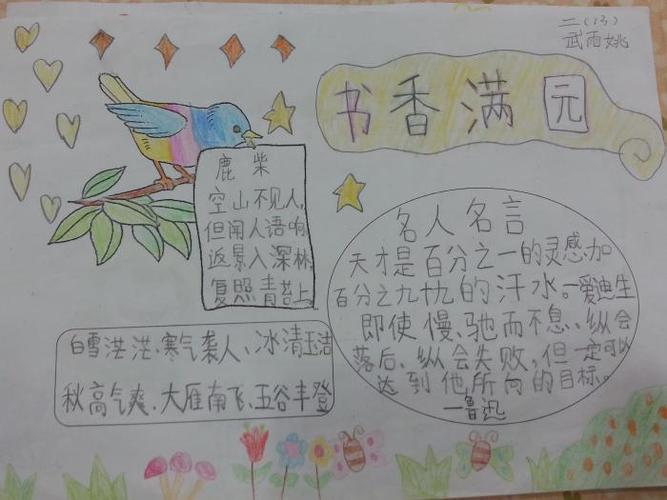 二(13)
武雨姚
书香满园
鹿柴
空山不见人,
但闻人语响
返景入深林,
复照青苔上。
名人名言
天才是百分之一的灵感.加
百分之九十九的汗水。一爱迪生
即使慢、驰而不息、纵会
落后、纵会失败,但一定可以
达到他所向的目标。
一鲁迅
白雪茫茫、寒气袭人、冰清玉洁
秋高气爽、大雁南飞、五谷丰登